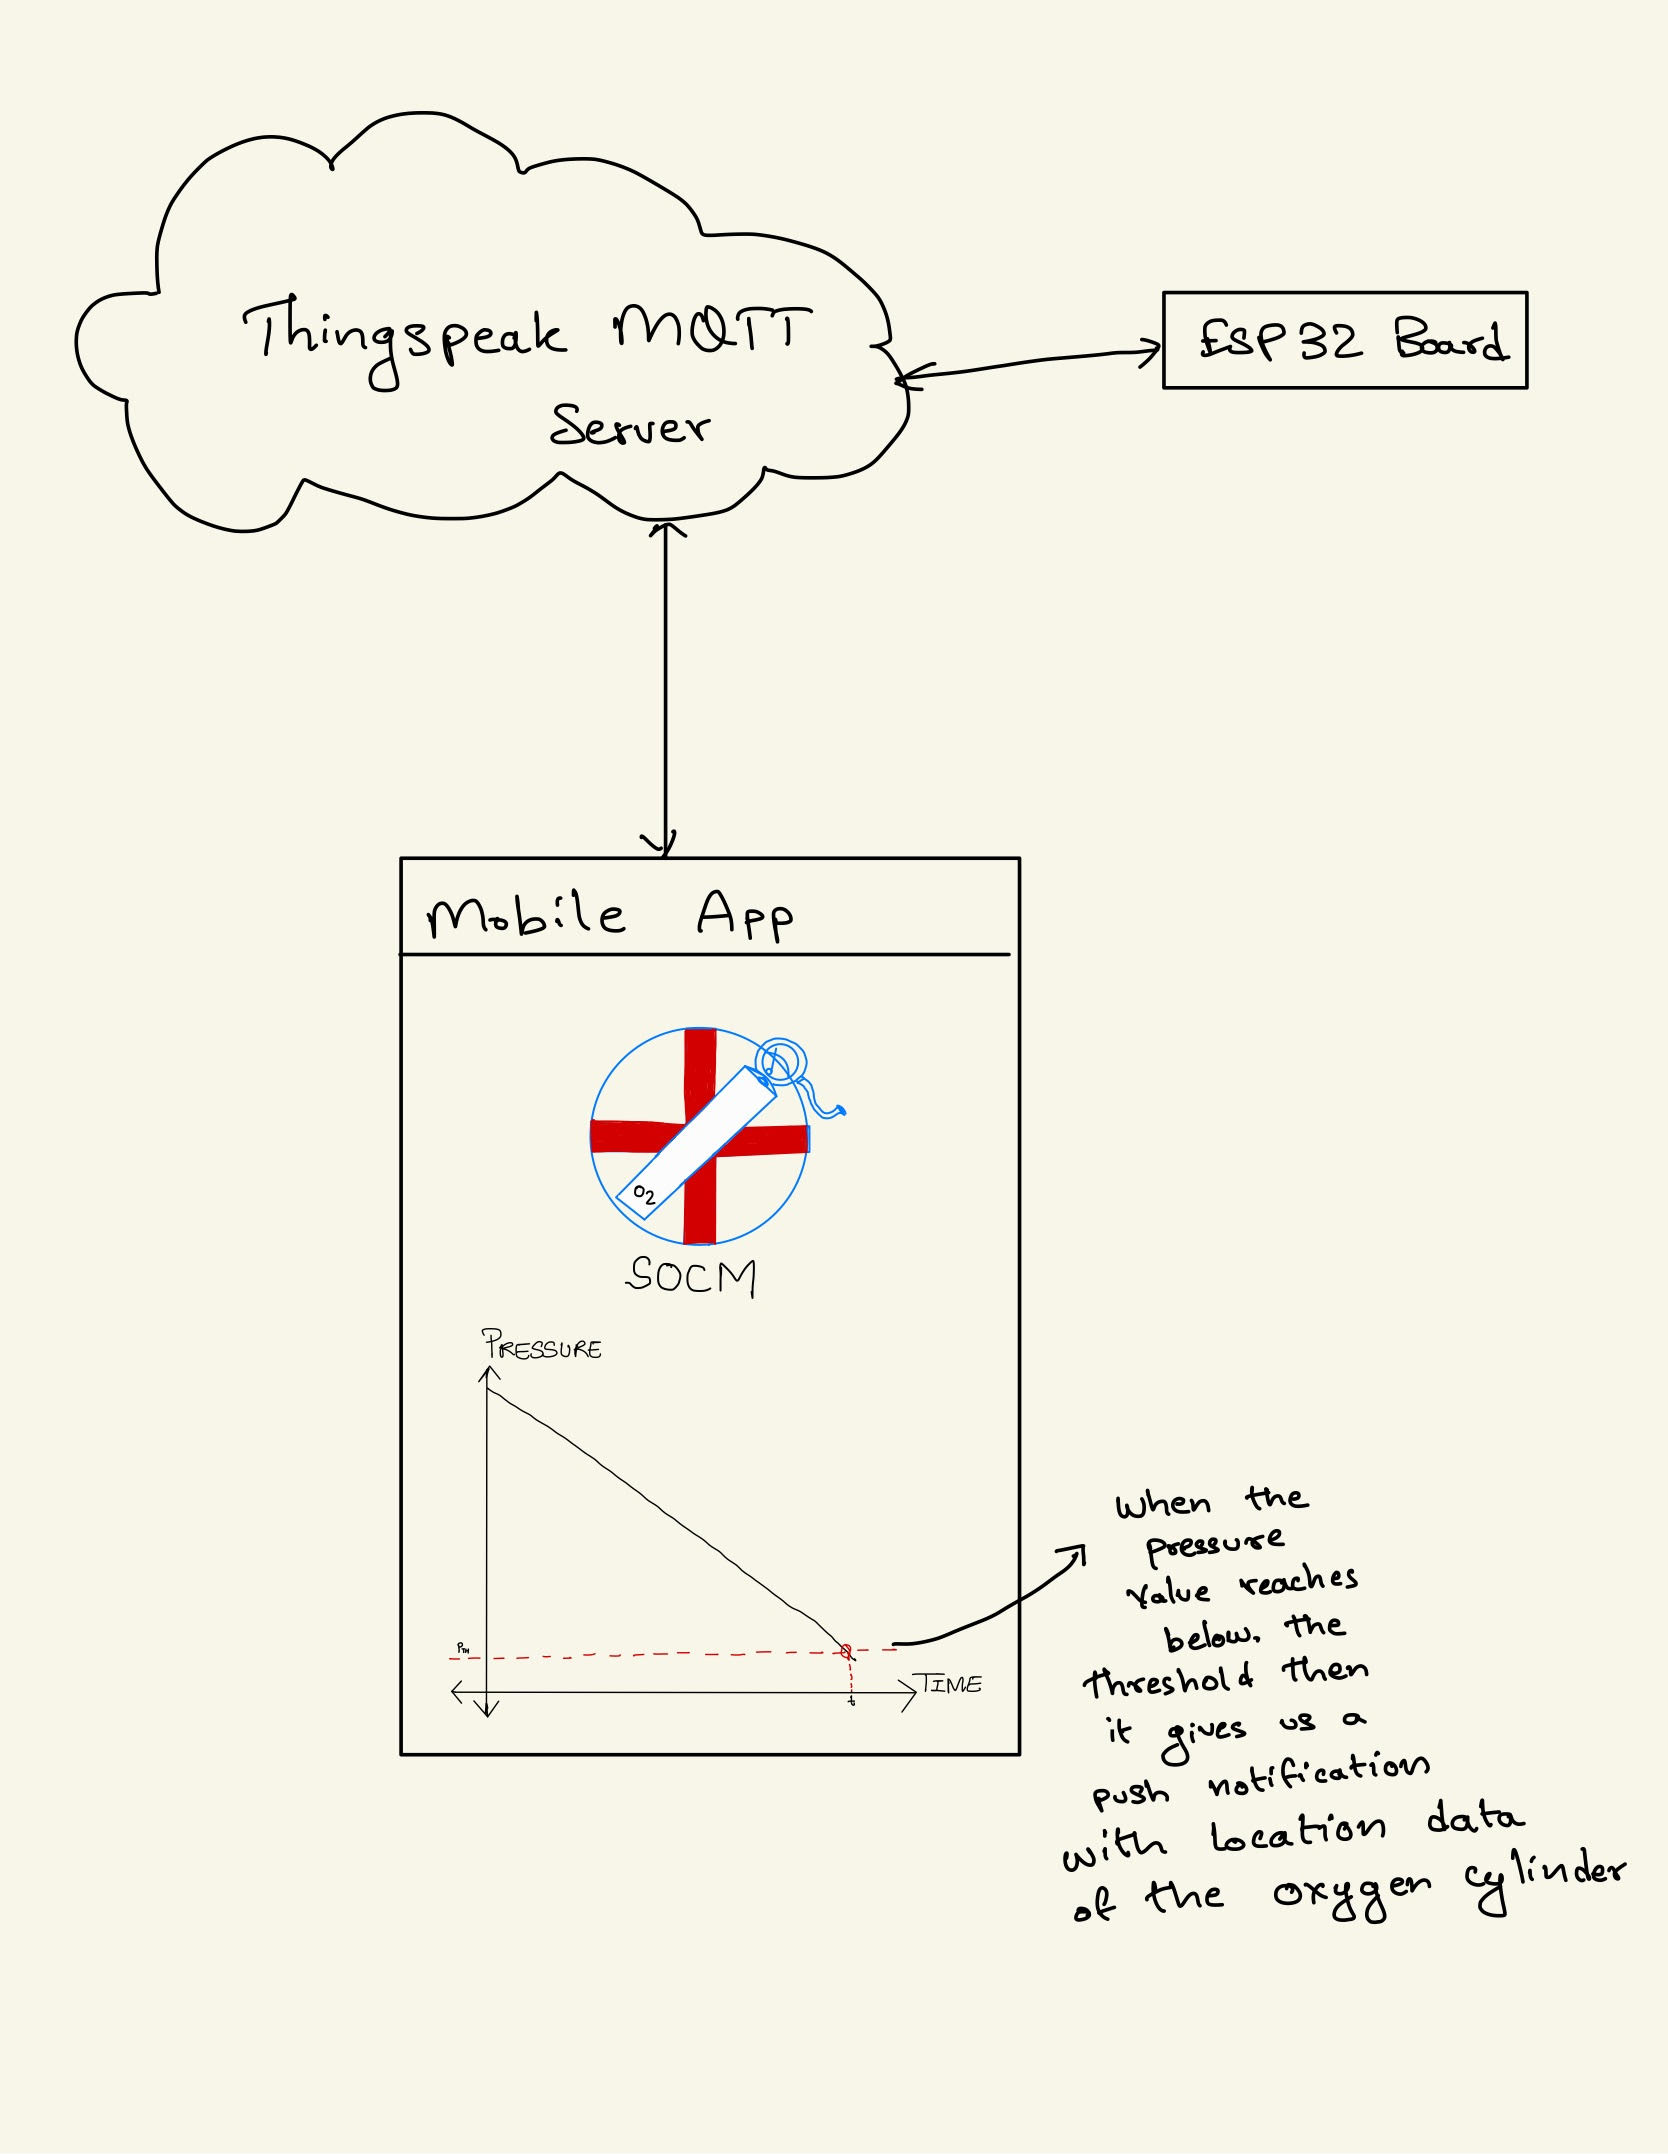 Thingspeak MQTT
Server
ESP32 Board
Mobile App
O2
SOCM
PRESSURE
PTH
TIME
t
When the
pressure
value reaches
below. the
threshold then
it gives us a
push notification
with location data
of the oxygen cylinder